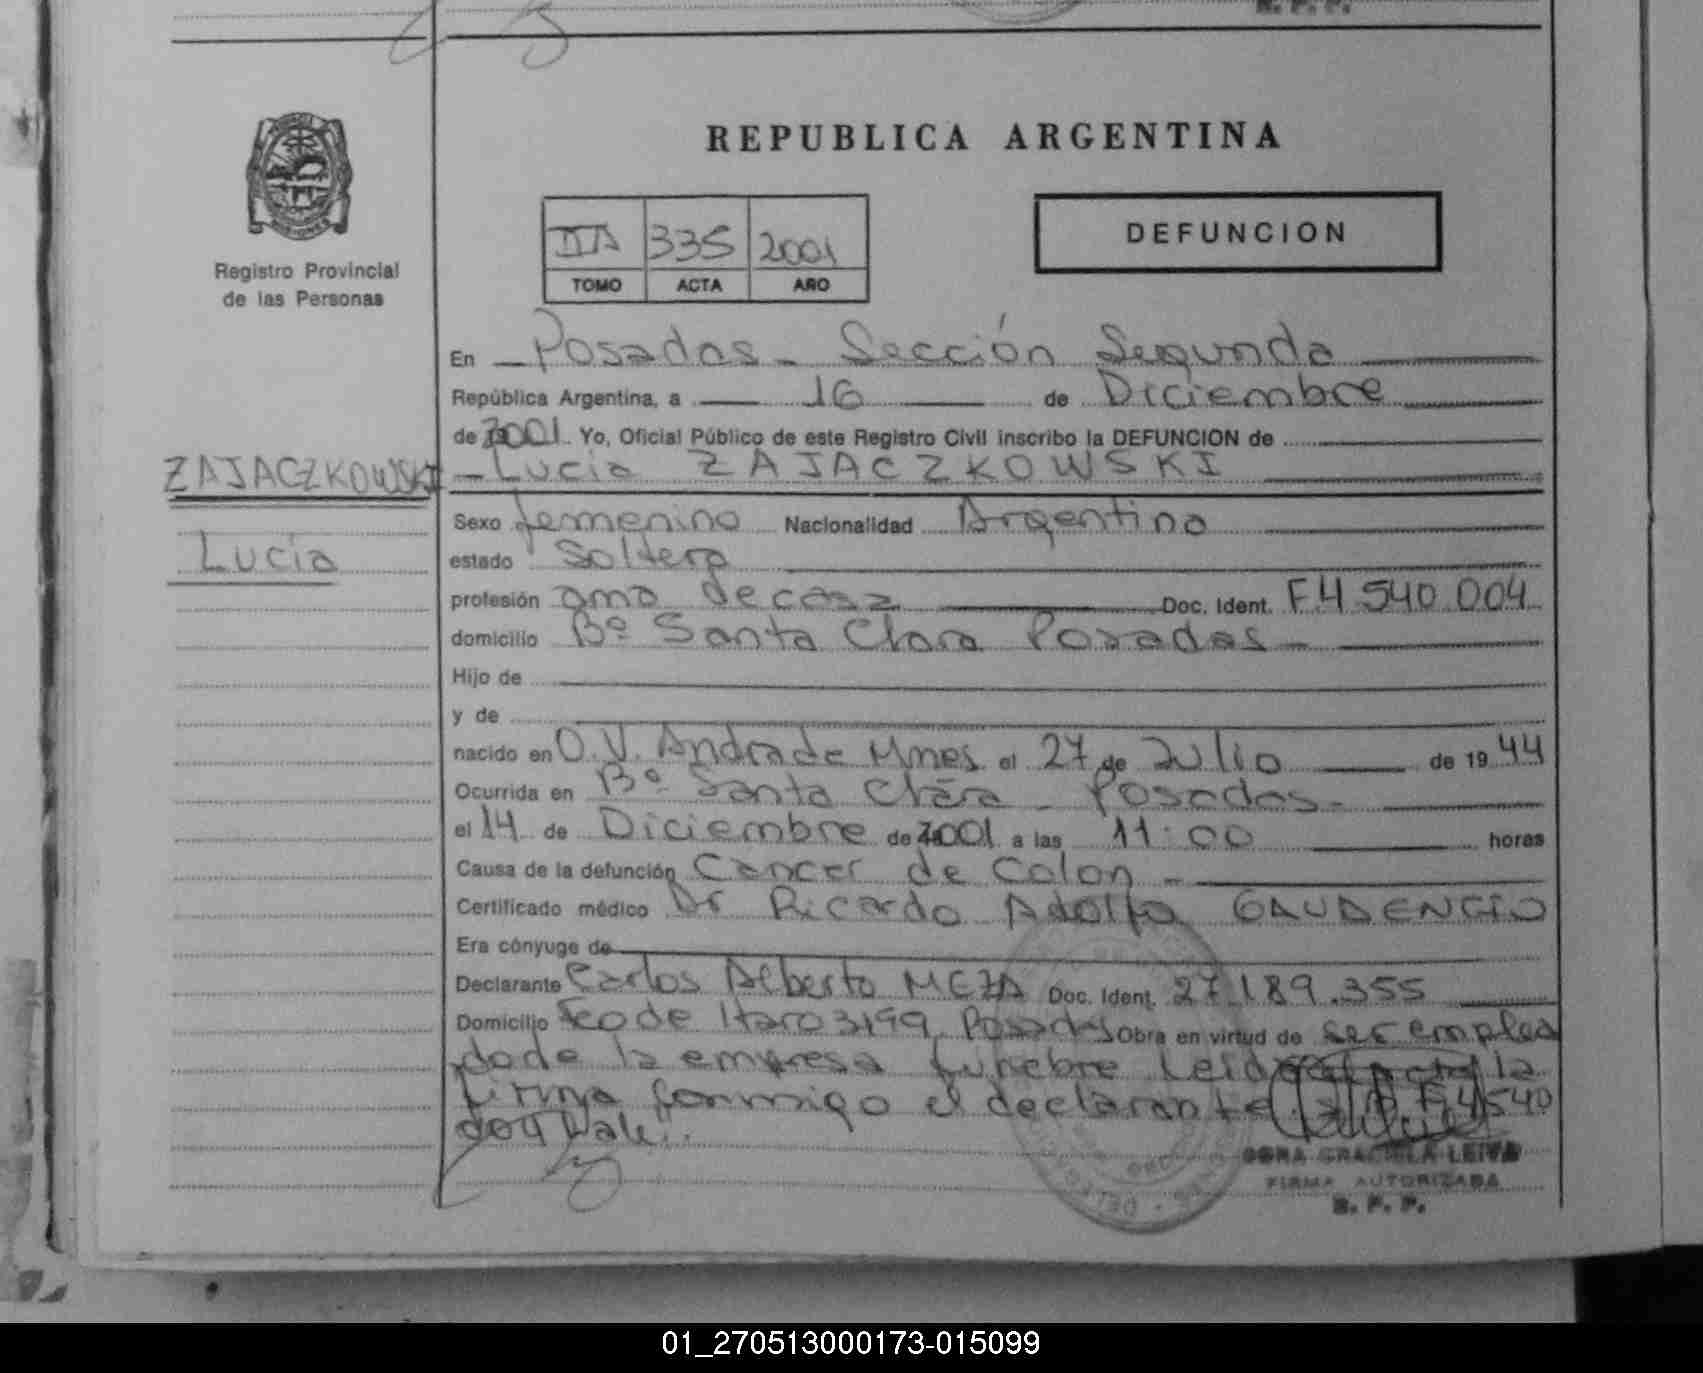 REPUBLICA ARGENTINA
Registro Provincial
de las Personas
IIA 335 2001
TOMO ACTA AÑO
DEFUNCION
En Posadas - Sección Segunda
República Argentina, a 16 de Diciembre
de 2001. Yo, Oficial Público de este Registro Civil inscribo la DEFUNCION de
ZAJACZKOWSKI
Lucía
Lucía ZAJACZKOWSKI
Sexo femenino Nacionalidad Argentina
estado Soltera
profesión ama de casa Doc. Ident. F4 540 004
domicilio Bº Santa Clara Posadas
Hijo de
y de
nacido en O.V. Andrade Mnes el 27 de Julio de 19 44
Ocurrida en Bº Santa Clara - Posadas -
el 14 de Diciembre de 2001 a las 11:00 horas
Causa de la defunción Cancer de Colon -
Certificado médico Dr Ricardo Adolfo GAUDENCIO
Era cónyuge de
Declarante Carlos Alberto MEZA Doc. Ident. 27.189.355
Domicilio Fco de Haro 3199 Posadas Obra en virtud de ser emplea
do de la empresa funebre Leida el acta la
firma conmigo el declarante F4540
004 Vale.
GRACIELA LEIVA
FIRMA AUTORIZADA
R. P. P.
01_270513000173-015099